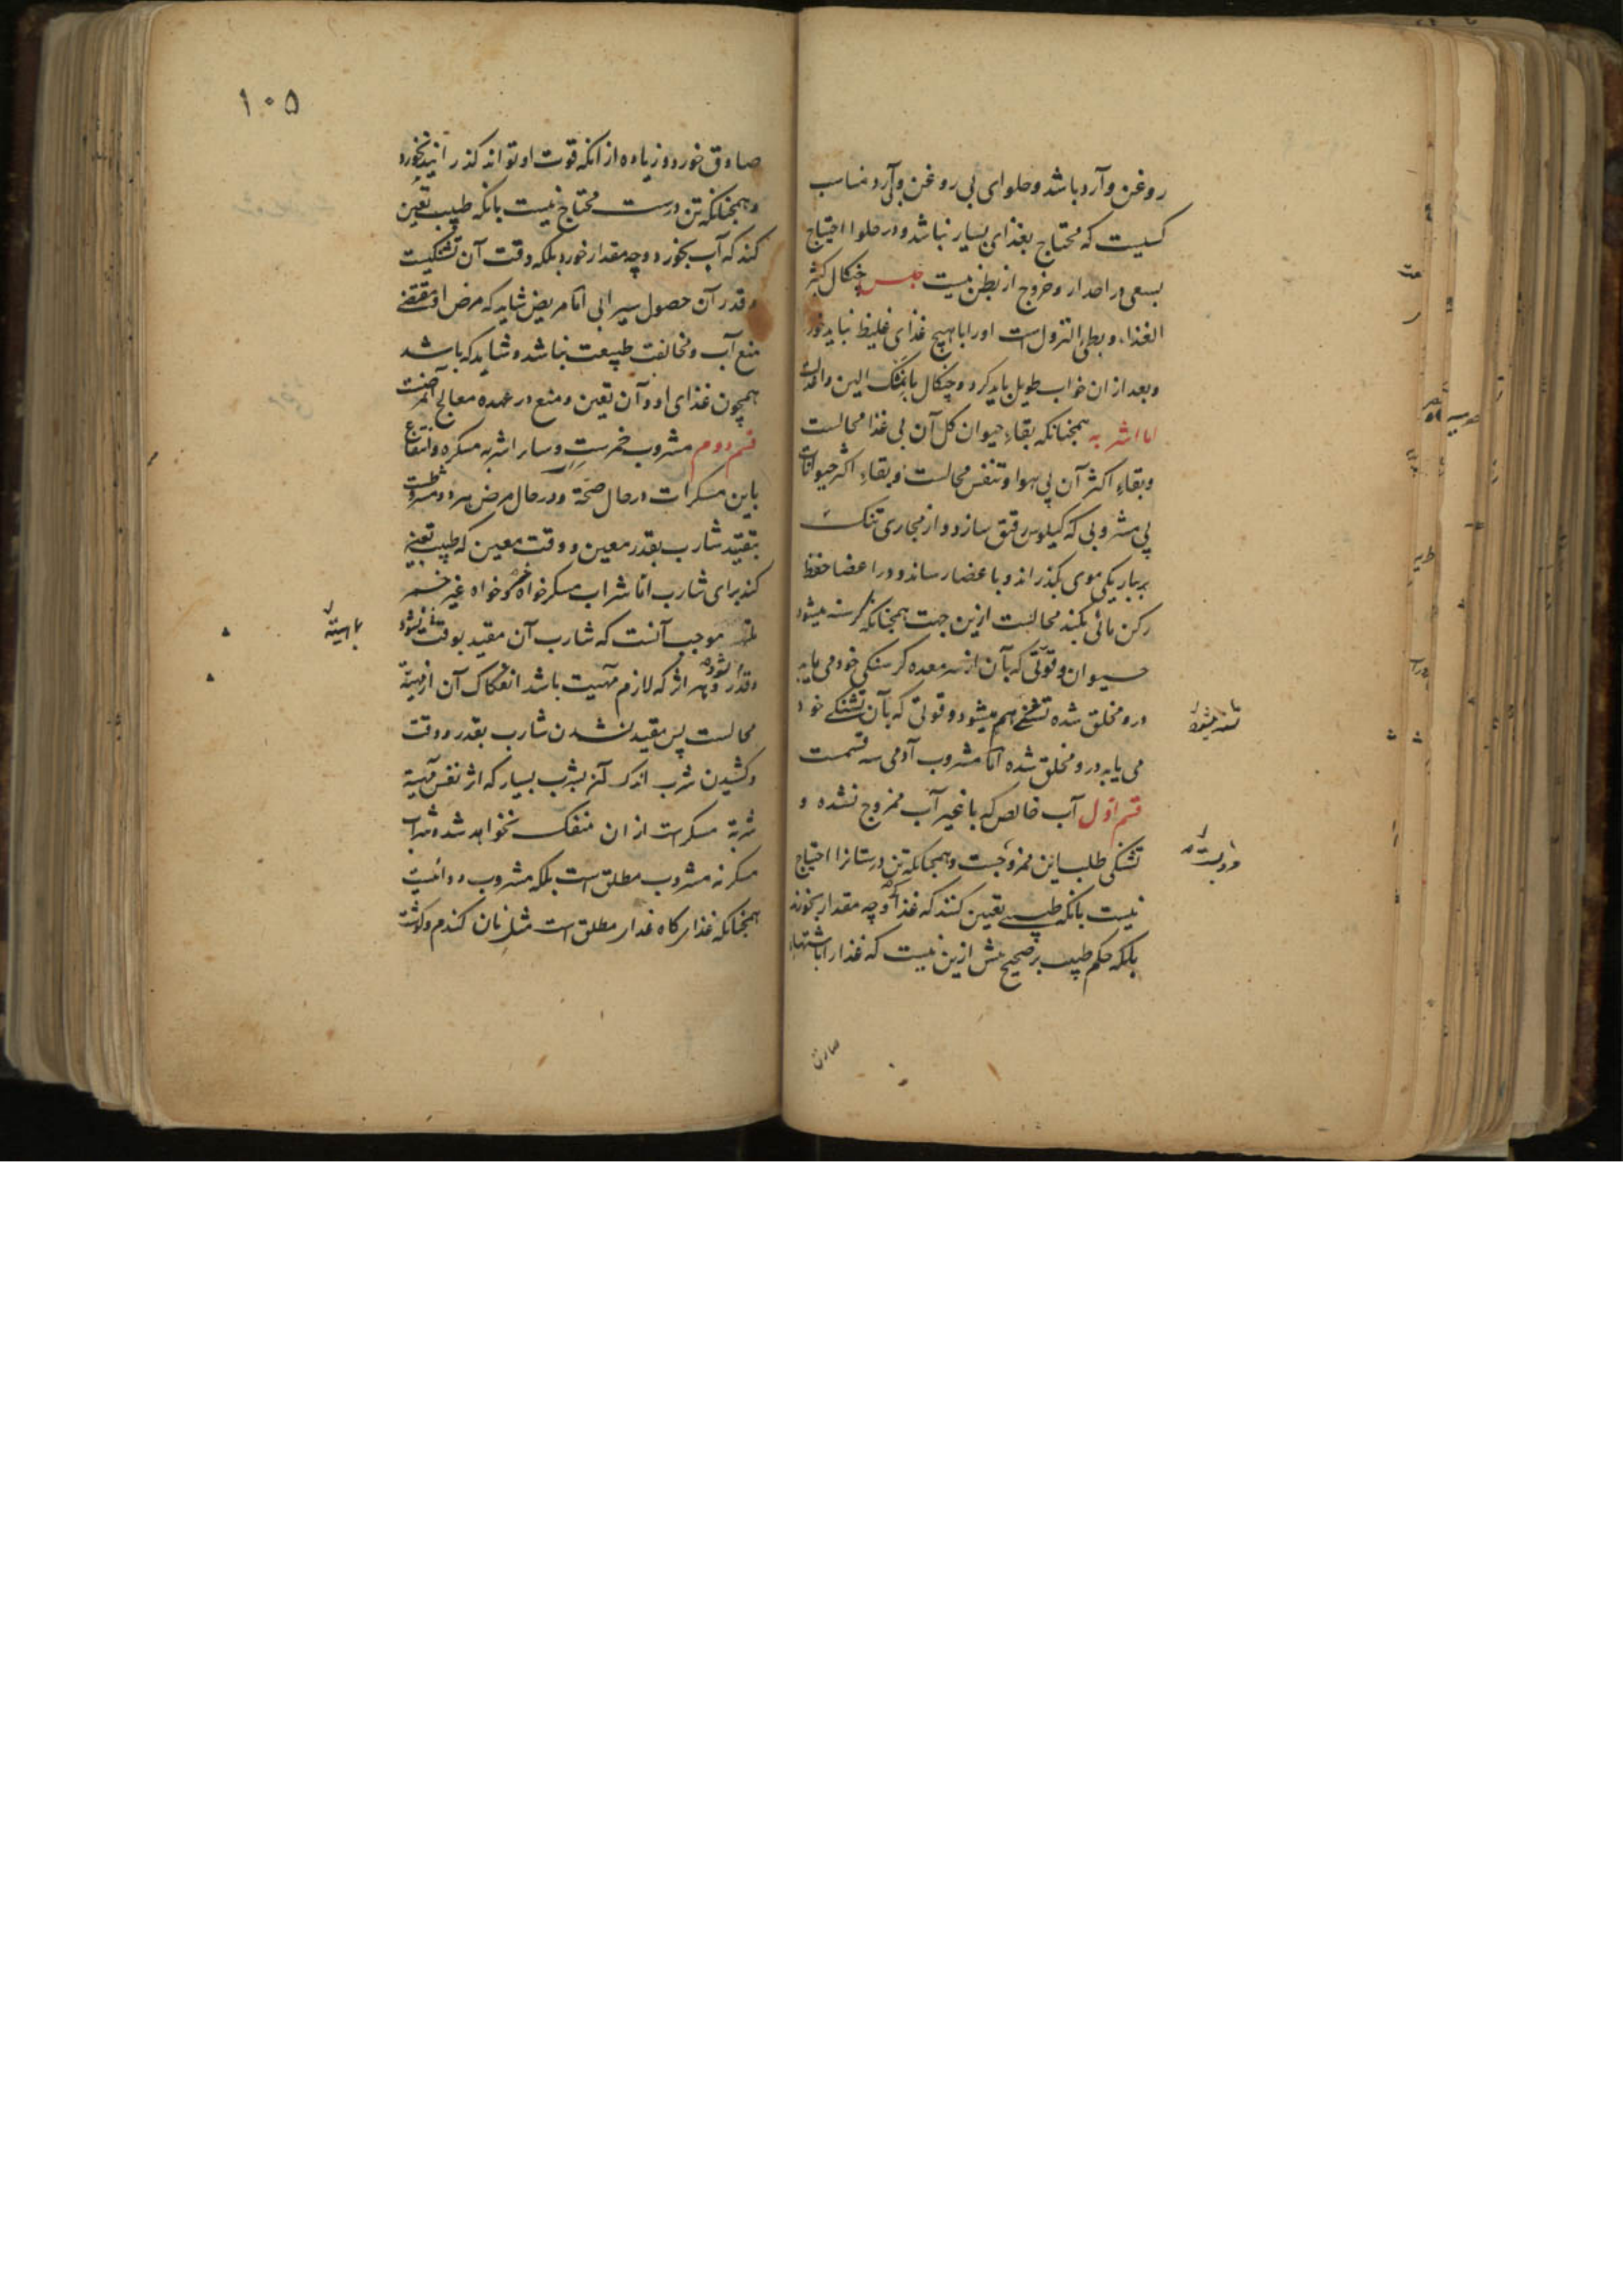 روغن و آرد باشد و حلوای بی روغن و آرد مناسب
کسیست که محتاج بغذای بسیار نباشد و در حلوا احتیاج
بسعی در احدار و خروج از بطن نیست جنس چنکال کثیر
الغذاء و بطئ النزول است او را با هیچ غذای غلیظ نباید خورد
و بعد از ان خواب طویل باید کرد و چنکال با نمک الین و
اما اشربه همچنانکه بقاء حیوان کل آن بی غذا محالست
و بقاء اکثر آن بی هوا و تنفس محالست و بقاء اکثر حیوانات
بی مشروبی که کیلوس رقیق سازد و از مجاری تنک
بباریکی موی بکذراند و با عضا رساند و در اعضا حفظ
رکن مائی بکند محالست ازین جهت همچنانکه کرسنه میشود
حیوان و قوتی که بآن از معده کرسنکی خود می یابد
درو مخلق شده تشنه هم میشود و قوتی که بآن تشنکی خود
می یابد درو مخلق شده اما مشروب آدمی سه قسمست
قسم اول آب خالص که با غیر آب ممزوج نشده و
تشنکی طلب این ممزوجست و همچنانکه تن درستانرا احتیاج
نیست بانکه طبیبی تعیین کنند که غذا و چه مقدار بخورند
بلکه حکم طبیب بر صحیح بیش ازین نیست که غذا را باشتهاء
صادق
۱۰۵
صادق خورد و زیاده از انکه قوت او تواند کذرانید نخورد
و همچنانکه تن درست محتاج نیست بانکه طبیب تعین
کند که آب بخورد و چه مقدار خورد بلکه وقت آن تشنکیست
و قدر آن حصول سیرابی اما مریض شاید که مرض او مقتضی
منع آب و مخالفت طبیعت نباشد و شاید که باشد
همچون غذای او و آن تعین و منع در عهده معالج آنمرضست
قسم دوم مشروب خمرست و سایر اشربه مسکره و انتفاع
باین مسکرات در حال صحة و در حال مرض هر دو مشروطست
بتقید شارب بقدر معین و وقت معین که طبیب تعین
کند برای شارب اما شراب مسکر خواه خمر و خواه غیر خمر
موجب آنست که شارب آن مقید بوقت نشود
و قدر نشود و هر اثر که لازم مهیت باشد انفکاک آن از مهیة
محالست پس مقید نشدن شارب بقدر و وقت
و کشیدن شرب اندک آنز بشرب بسیار که اثر نفس مهیة
شربة مسکرست از ان منفک نخواهد شد و شراب
مسکر نه مشروب مطلق است بلکه مشروب دوائیست
همچنانکه غذا کاه غذاء مطلق است مثل نان کندم و کوشت